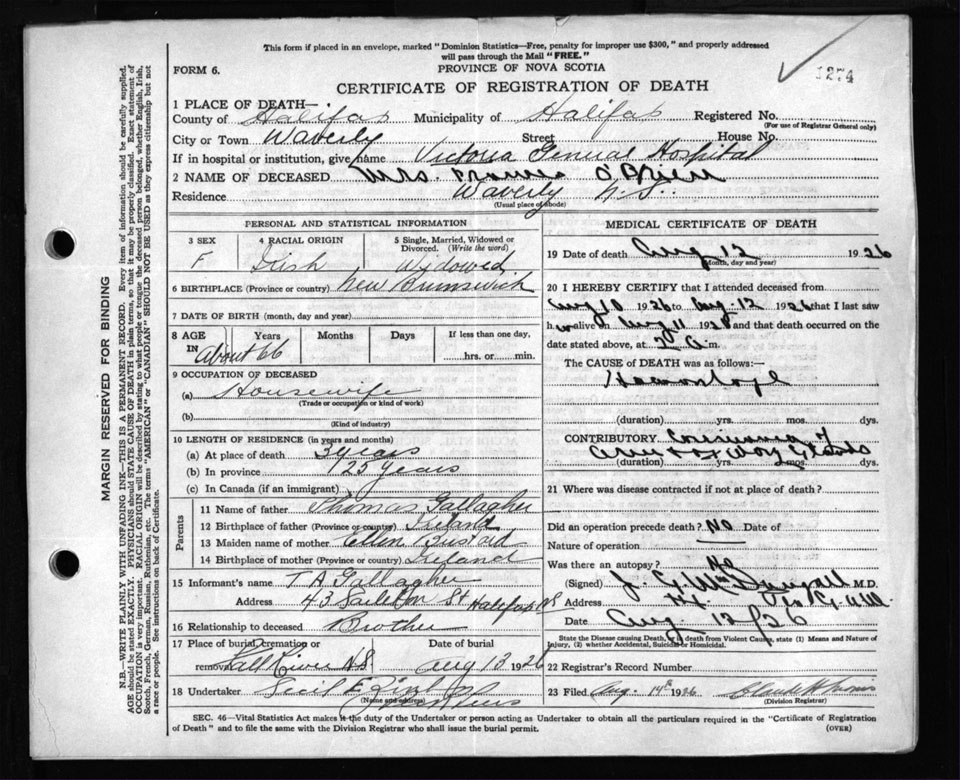 This form if placed in an envelope, marked "Dominion Statistics—Free, penalty for improper use $300," and properly addressed
will pass through the Mail "FREE."
FORM 6.
PROVINCE OF NOVA SCOTIA
1274
CERTIFICATE OF REGISTRATION OF DEATH
1 PLACE OF DEATH—
County of Halifax Municipality of Halifax Registered No.
(For use of Registrar General only)
City or Town Waverly Street House No.
If in hospital or institution, give name Victoria General Hospital
2 NAME OF DECEASED Mrs. Frances O'Brien
Residence Waverly N.S.
(Usual place of abode)
PERSONAL AND STATISTICAL INFORMATION
3 SEX 4 RACIAL ORIGIN 5 Single, Married, Widowed or Divorced. (Write the word)
F Irish Widowed
6 BIRTHPLACE (Province or country) New Brunswick
7 DATE OF BIRTH (month, day and year)
8 AGE IN Years Months Days If less than one day,
About 66 ....hrs. or ....min.
9 OCCUPATION OF DECEASED
(a) Housewife
(Trade or occupation or kind of work)
(b)
(Kind of industry)
10 LENGTH OF RESIDENCE (in years and months)
(a) At place of death 3 years
(b) In province 25 years
(c) In Canada (if an immigrant)
Parents
11 Name of father Thomas Gallagher
12 Birthplace of father (Province or country) Ireland
13 Maiden name of mother Ellen Bustard
14 Birthplace of mother (Province or country) Ireland
15 Informant's name T A Gallagher
Address 43 St Halifax NS
16 Relationship to deceased Brother
17 Place of burial cremation or Date of burial
removal Fall River N.S Aug 13 1926
18 Undertaker Cecil E.
(Name and address)
MEDICAL CERTIFICATE OF DEATH
19 Date of death Aug 12 1926
(Month, day and year)
20 I HEREBY CERTIFY that I attended deceased from
Aug 10 1926 to Aug. 12 1926 that I last saw
h alive on Aug 11 1926 and that death occurred on
date stated above, at m.
The CAUSE of DEATH was as follows:—
Hemorrhage
(duration) yrs. mos. dys.
CONTRIBUTORY Carcinoma of
Glands
(duration) yrs. mos. dys.
21 Where was disease contracted if not at place of death?
Did an operation precede death? No Date of
Nature of operation
Was there an autopsy? No
(Signed) J. M.D.
Address
Date Aug 12/26
State the Disease causing Death, or in death from Violent Causes, state (1) Means and Nature of
Injury, (2) whether Accidental, Suicidal or Homicidal.
22 Registrar's Record Number
23 Filed Aug. 14th 1926
(Division Registrar)
SEC. 46—Vital Statistics Act makes it the duty of the Undertaker or person acting as Undertaker to obtain all the particulars required in the "Certificate of Registration
of Death" and to file the same with the Division Registrar who shall issue the burial permit.
(OVER)
MARGIN RESERVED FOR BINDING
N.B.—WRITE PLAINLY WITH UNFADING INK—THIS IS A PERMANENT RECORD. Every item of information should be carefully supplied.
AGE should be stated EXACTLY. PHYSICIANS should STATE CAUSE OF DEATH in plain terms, so that it may be properly classified. Exact statement of
OCCUPATION is very important. RACIAL ORIGIN will be described by stating to what people or tongue the deceased person belonged, whether English, Irish,
Scotch, French, German, Russian, Ruthenian, etc. The terms "AMERICAN" or "CANADIAN" SHOULD NOT BE USED as they express citizenship but not
a race or people. See instructions on back of Certificate.